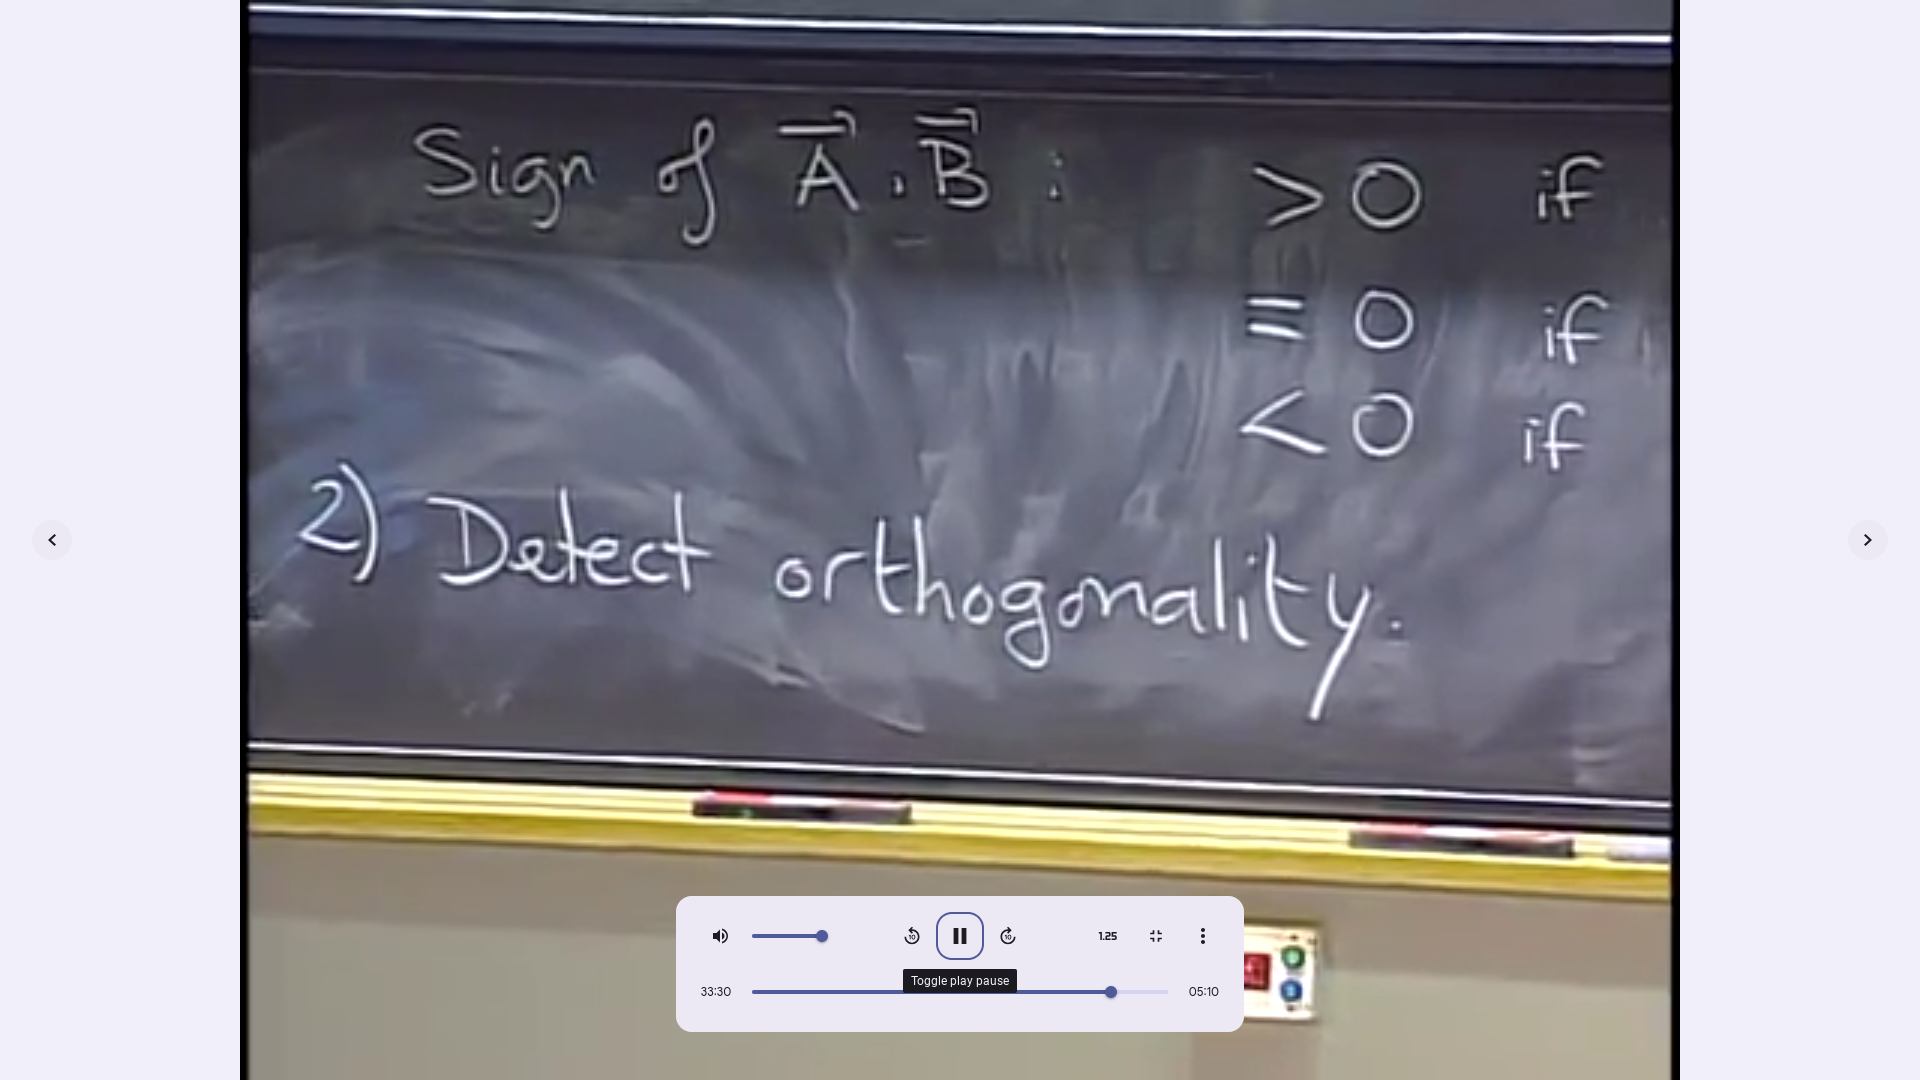 Sign of A⃗ . B⃗ : > 0 if
= 0 if
< 0 if
2) Detect orthogonality.
1.25
Toggle play pause
33:30 05:10